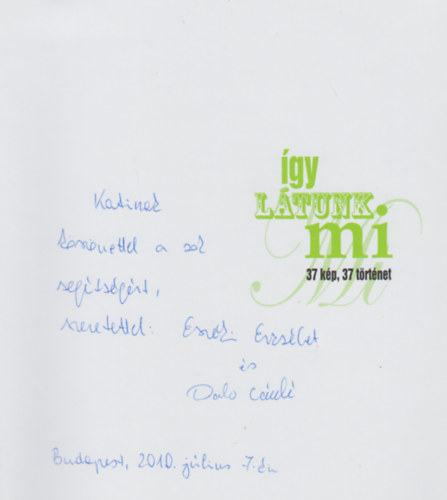 így
LÁTUNK
mi
37 kép, 37 történet
Katinak
köszönettel a sok
segítségért,
szeretettel: Erzsébet
és
Budapest, 2010. július 7-én